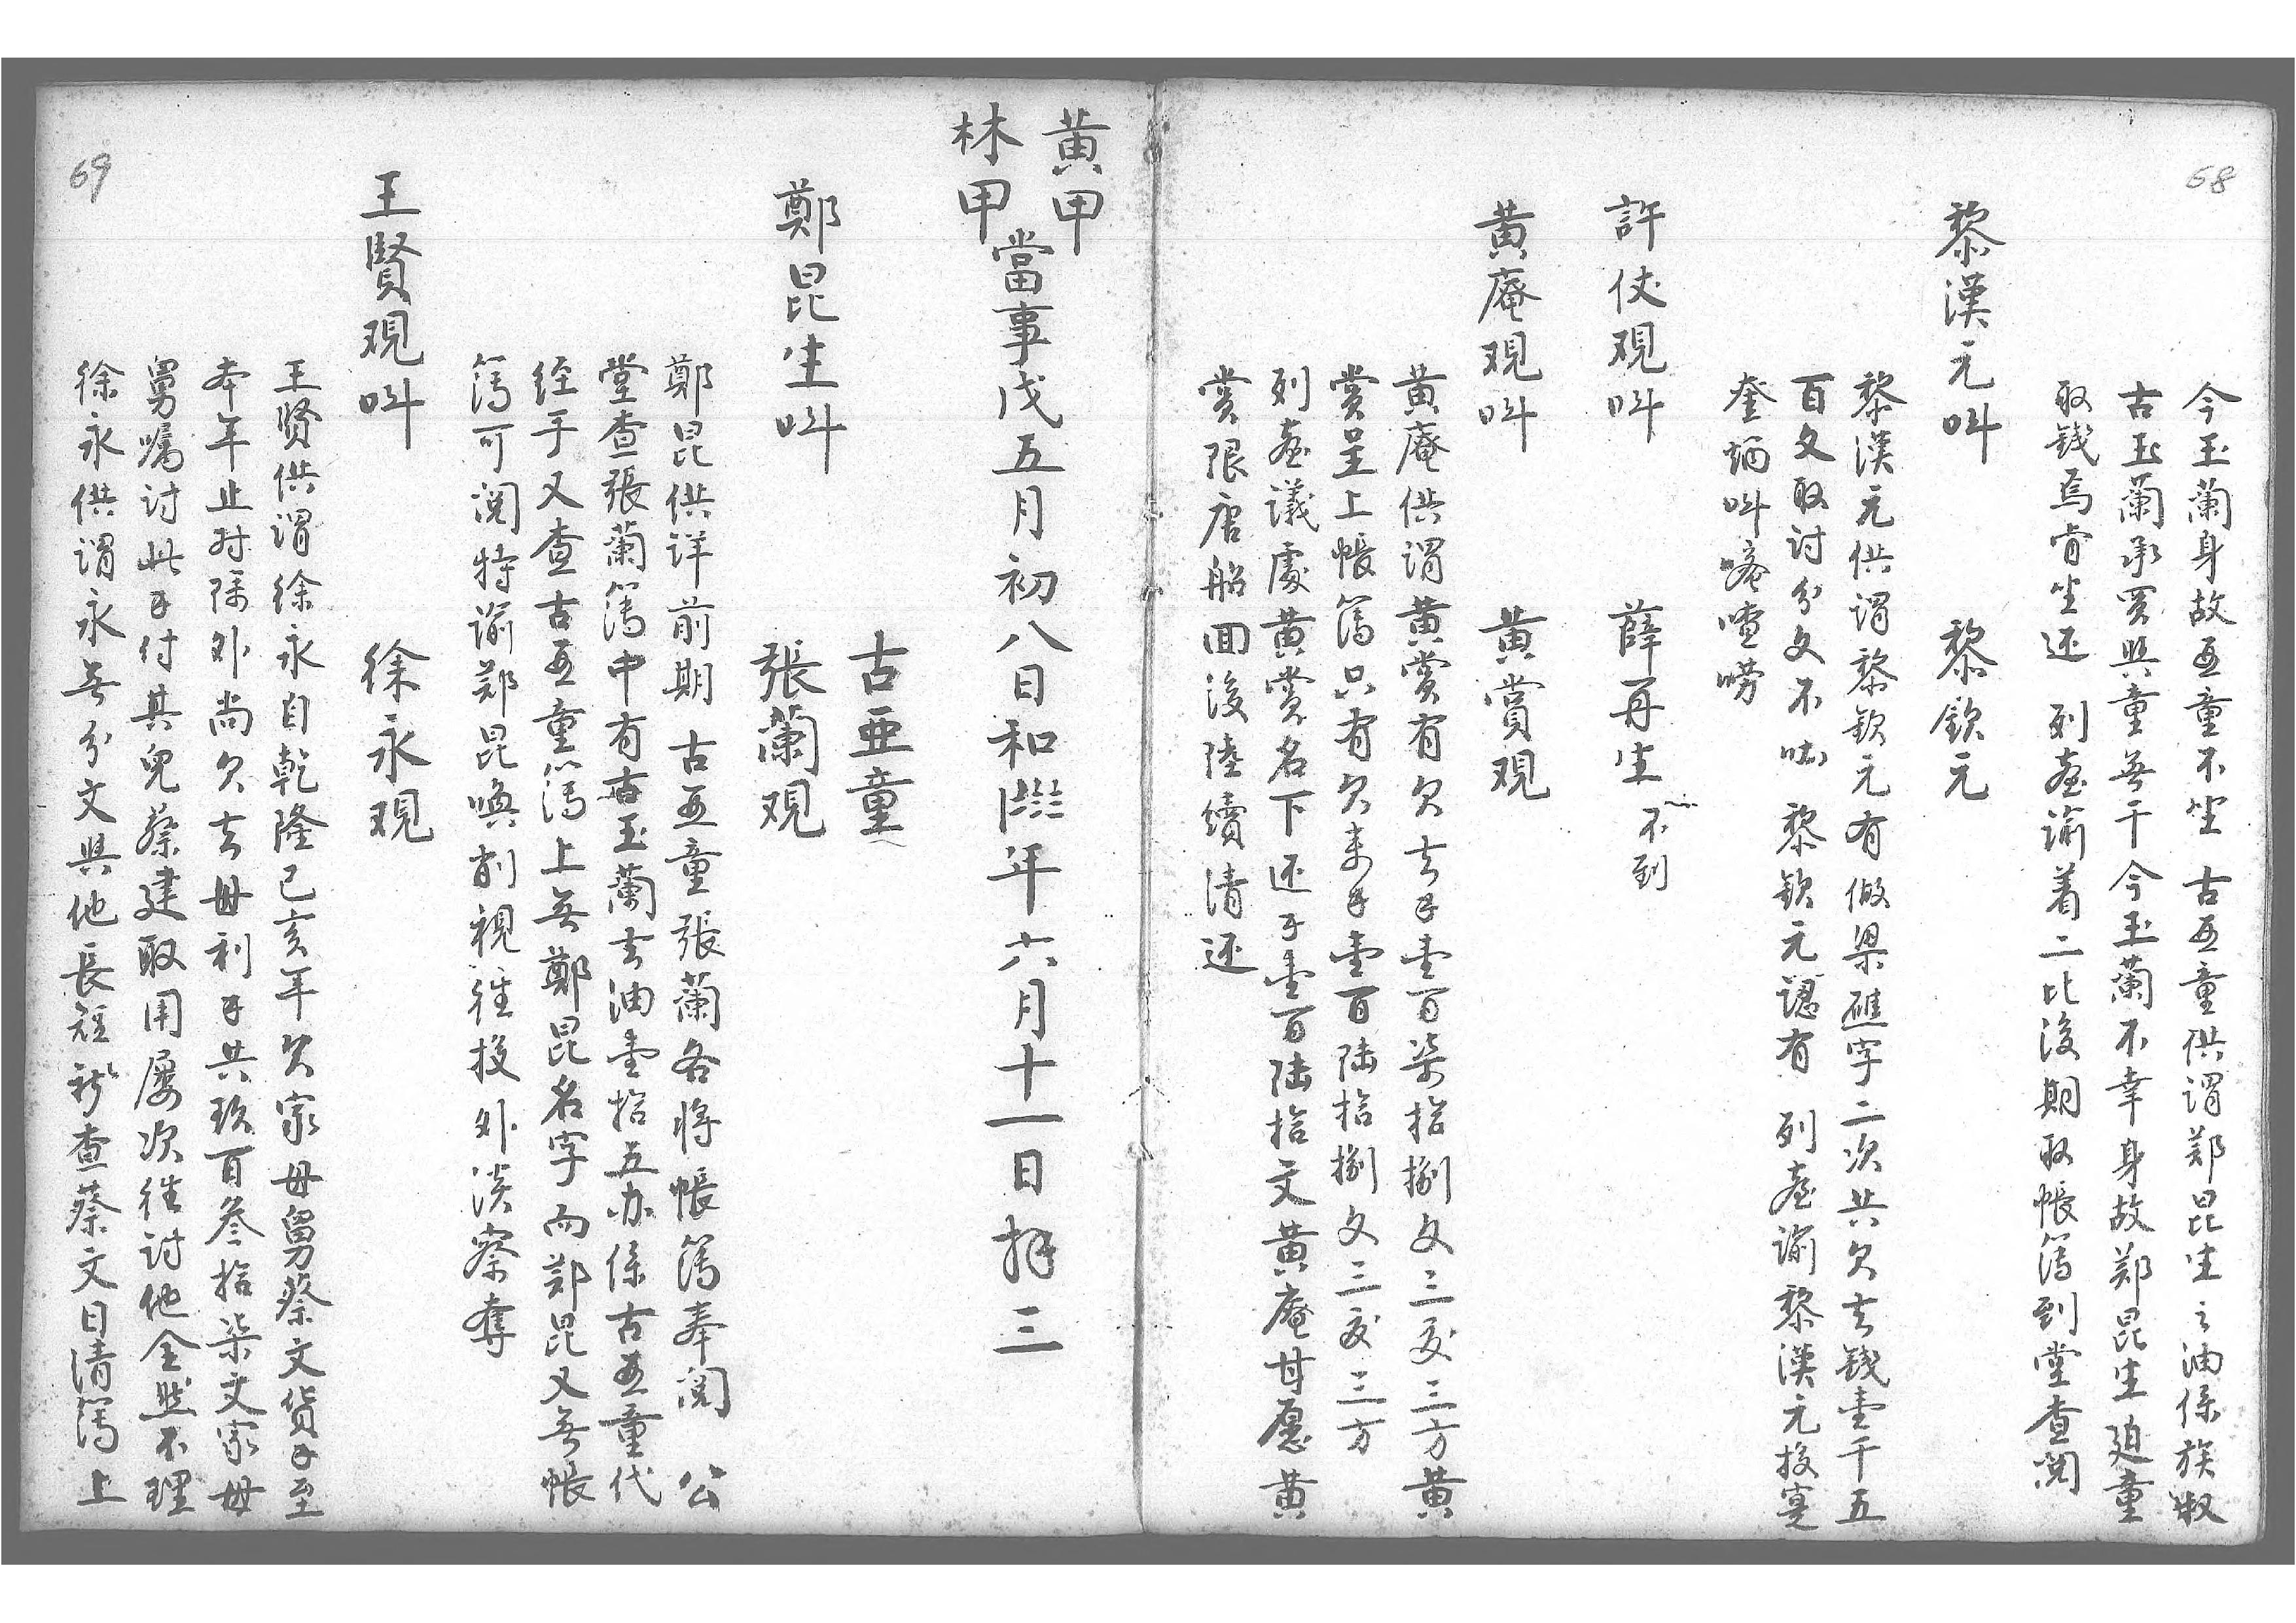 68
今玉蘭身故亜童不坐 古亜童供謂鄭昆坐之油係族叔
古玉蘭承買與童無干今玉蘭不幸身故鄭昆坐廹童
取錢焉肯坐还 列臺諭着二比後期取帳簿到堂查閱
黎漢元叫 黎欽元
黎漢元供謂黎欽元有做梁礁字二次共欠去錢壹千五
百文取討分文不 黎欽元認有 列臺諭黎漢元投寔
奎炳叫嘧喳嘮
許伩观叫 薛再生 不到
黃庵观叫 黃賞观
黃庵供謂黃賞有欠去壹百柒拾捌文三方黃
賞呈上帳簿只有欠来壹百陆拾捌文三方
列臺議處黃賞名下还壹百陆拾文黃庵甘愿黃
賞限唐船回後陸續清还
黃甲
林甲 當事戊五月初八日和年六月十一日拜三
鄭昆坐叫 古亜童
張蘭观
鄭昆供詳前期 古亜童張蘭各將帳簿奉閱 公
堂查張蘭簿中有古玉蘭去油壹拾五办係古亜童代
经手又查古亜童簿上無鄭昆名字而鄭昆又無帳
簿可閱特諭鄭昆喚削視徃投外淡察奪
王賢观叫 徐永观
王贤供謂徐永自乾隆己亥年欠家母舅蔡文貨至
本年止对除外尚欠去母利共玖百叁拾柒文家母
舅嘱討此付其兒蔡建取用屡次徃討他全然不理
徐永供謂永無分文與他長短祈查蔡文日清簿上
69